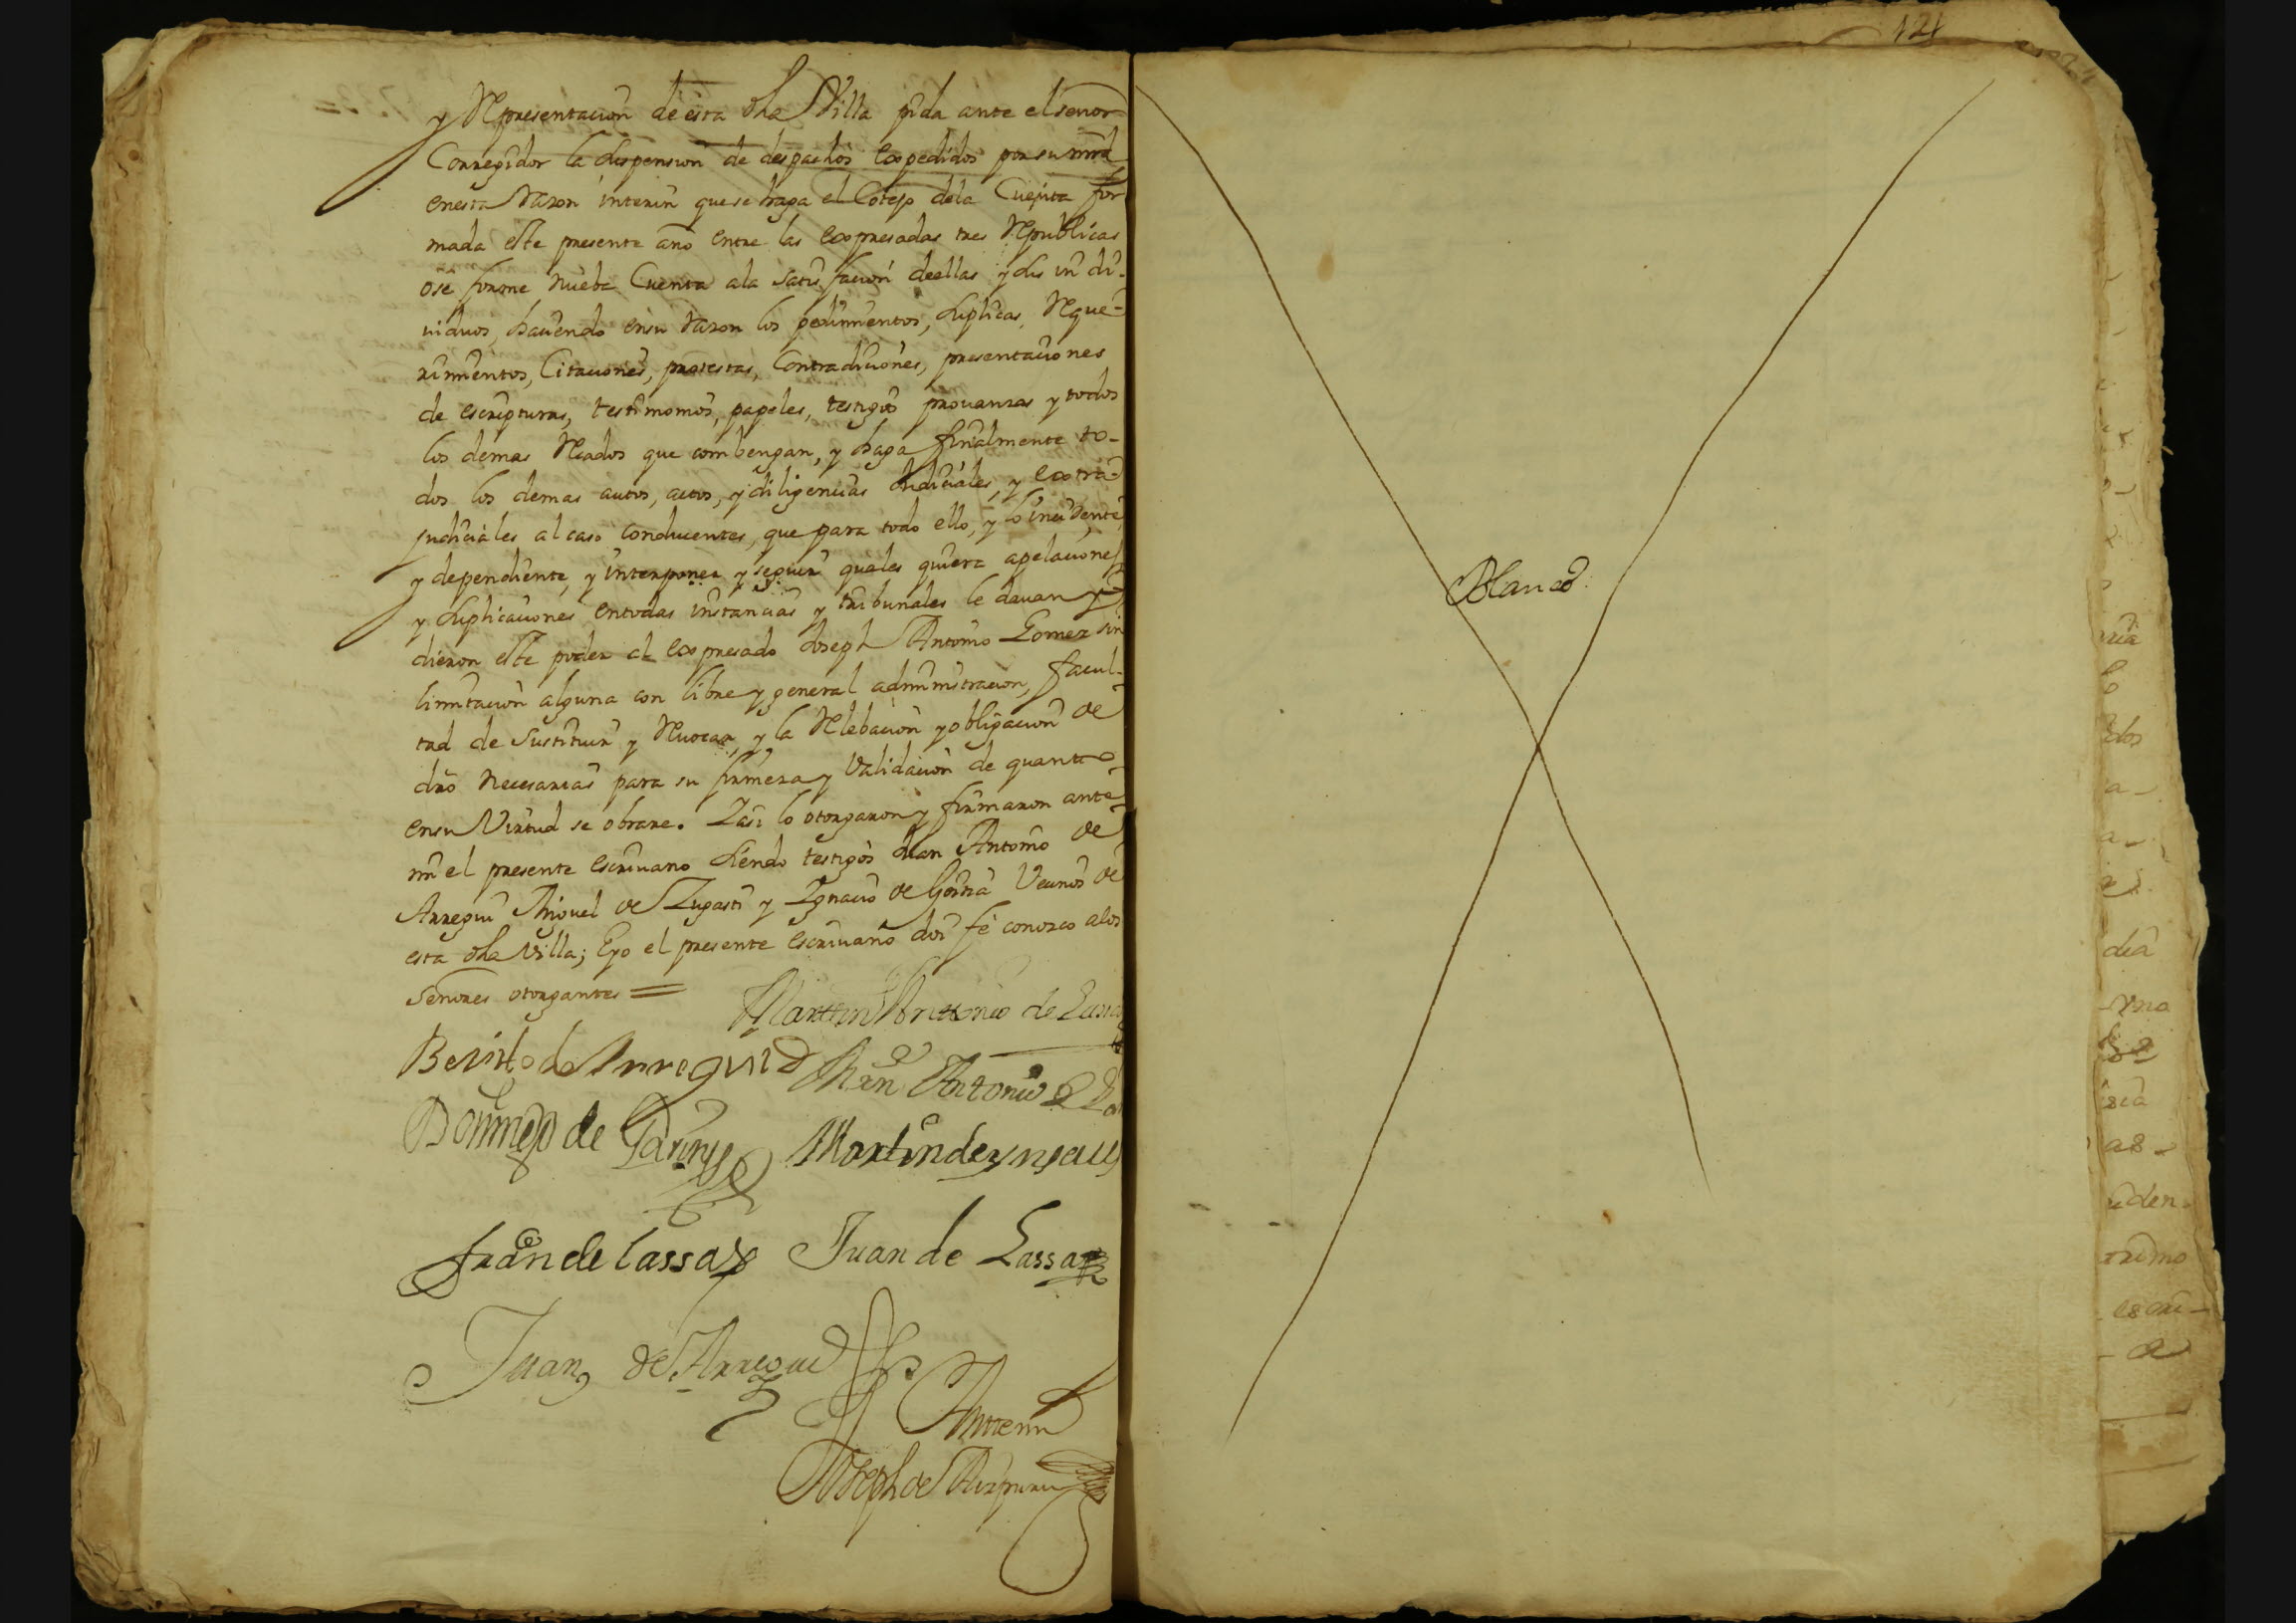 y Representacion de esta dha Villa pida ante el señor
Corregidor la suspension de despachos expedidos por su mrd
en esta razon interin que se haga el Cotejo dela Cuenta for
mada este presente año entre las expresadas tres Republicas
ose forme nueba Cuenta ala satisfacion deellas y sus indi-
viduos, haciendo ensu razon los pedimientos, suplicas, Reque-
rimientos, Citaciones, protestas, Contradiciones, presentaciones
de escripturas, testimonios, papeles, testigos provanzas y todos
los demas Recados que combengan, y haga finalmente to-
dos los demas autos, actos, y diligencias Judiciales, y extra-
judiciales al caso conducentes, que para todo ello, y lo incidente
y dependiente, y interponer y seguir quales quiera apelaciones
y suplicaciones entodas instancias y tribunales le davan y
dieron este poder al expresado Joseph Antonio Gomez sin
limitacion alguna con libre y general administracion, facul-
tad de sustituir y Revocar, y la Relebacion y obligacion de
dro necesarias para su firmeza y Validacion de quanto
ensu Virtud se obrare. Y asi lo otorgaron y firmaron ante
mi el presente escrivano siendo testigos Juan Antonio de
Arregui Miguel de Zugasti y Ignacio de Goitia Vecinos de
esta dha Villa; E yo el presente escrivano doi fé conozco alos
señores otorgantes =
Marttin Anttonio de
Benito de Arregui
Mrn Antonio de
Domingo de
Martin de
Fran de Lassa
Juan de Lassa
Juan de Arregui
Antemi
Joseph de Aizpuru
121
Blanco